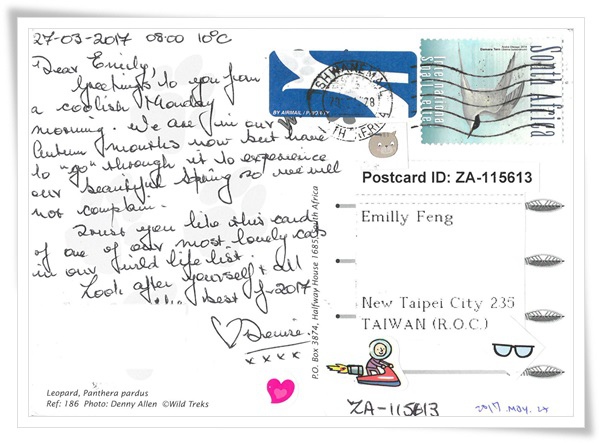 27-03-2017 08:00 10°C
Dear Emily,
Greetings to you from
a coolish Monday
morning. We are in our
Autumn months now but have
to "go" through it to experience
our beautiful Spring so we will
not complain.
Trust you like this card
of one of our most lovely cats
in our wild life list.
Look after yourself & all
the best for 2017
♡ Denise.
xxxx
Leopard, Panthera pardus
Ref: 186 Photo: Denny Allen ©Wild Treks
P.O. Box 3874, Halfway House 1685, South Africa
BY AIRMAIL /
TSHWANE
South Africa
International
Small Letter
Postcard ID: ZA-115613
Emilly Feng
New Taipei City 235
TAIWAN (R.O.C.)
ZA-115613
2017. MAY. 24